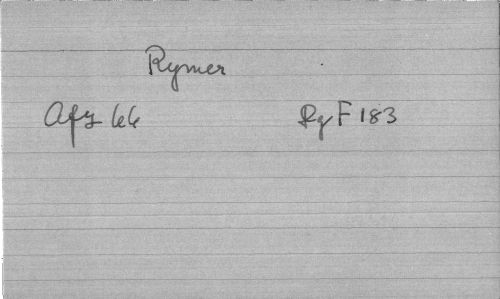 Rymer
Afz 66 Rg F 183